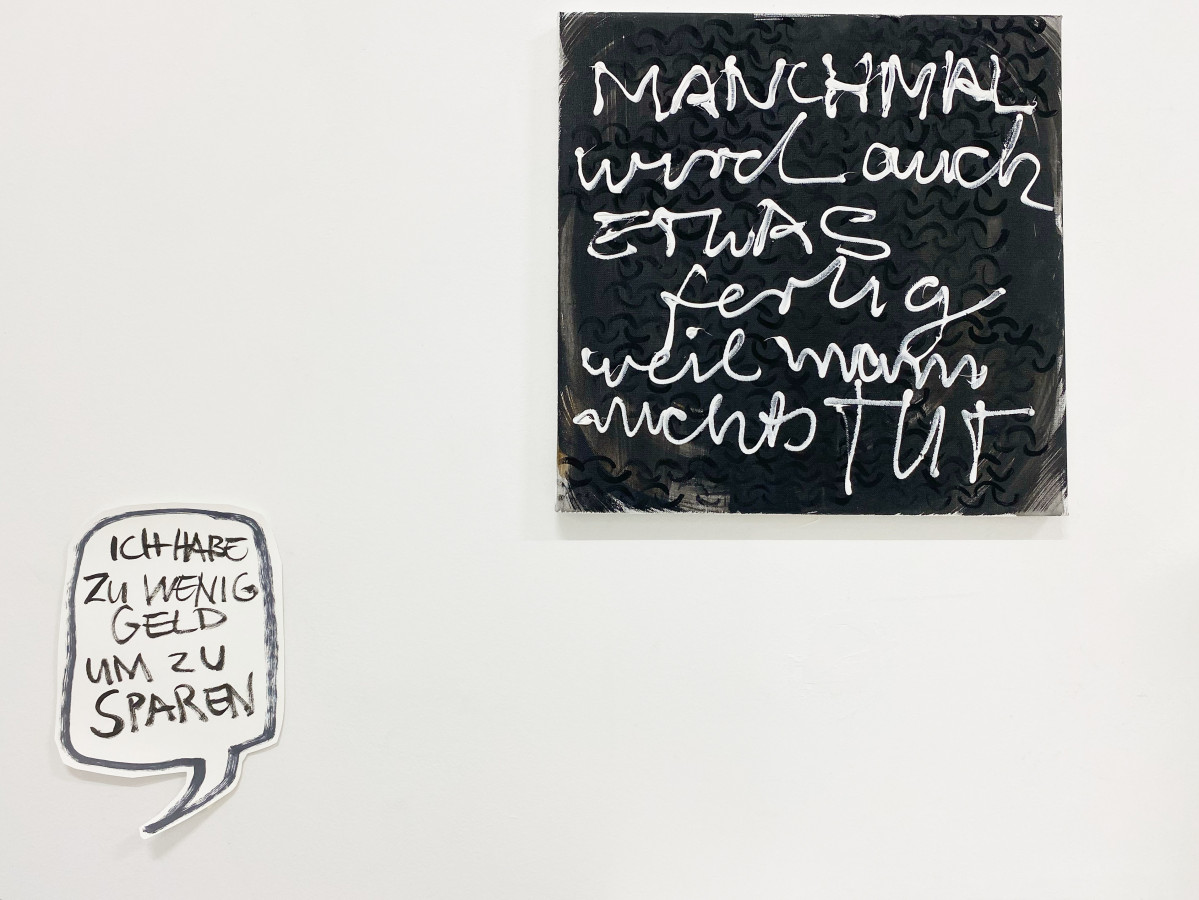 MANCHMAL
wird auch
ETWAS
fertig
weil man
nichts TUT
ICH HABE
ZU WENIG
GELD
UM ZU
SPAREN